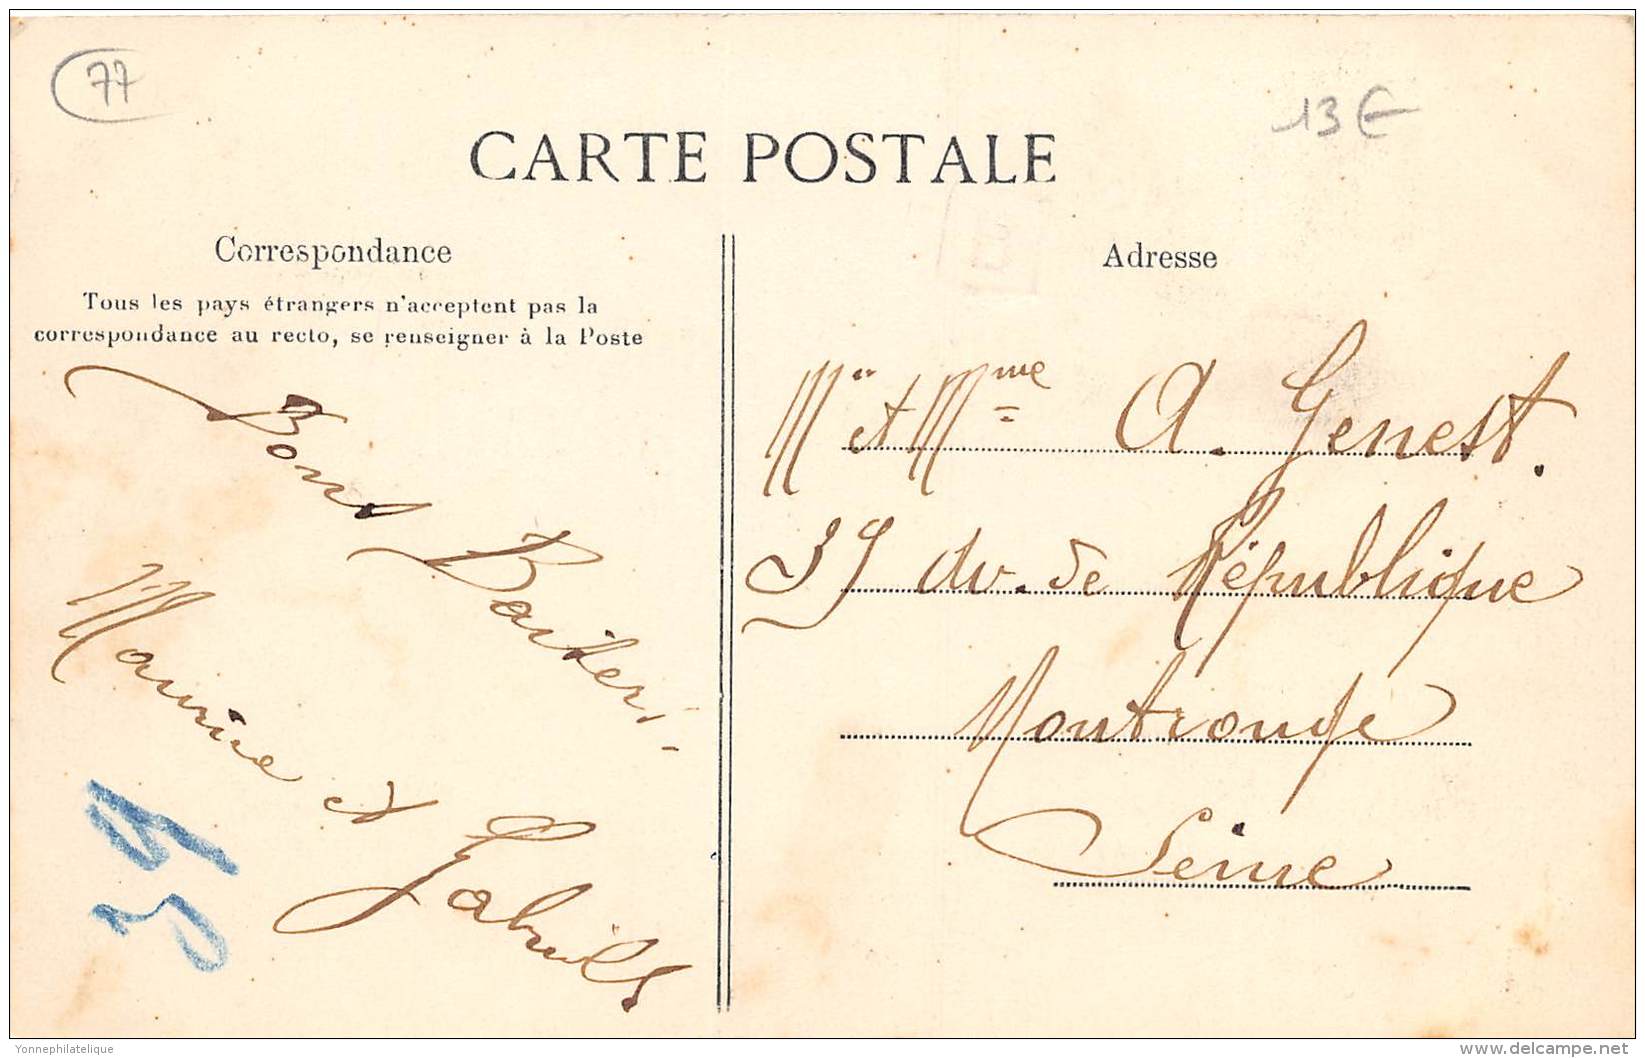 77
13 €
CARTE POSTALE
Correspondance
Tous les pays étrangers n'acceptent pas la
correspondance au recto, se renseigner à la Poste
Bons Baisers.
Maurice et
Adresse
Mr et Mme A. Genest.
39 Av. de République
Montrouge
Seine
39
Yonnephilatelique
www.delcampe.net